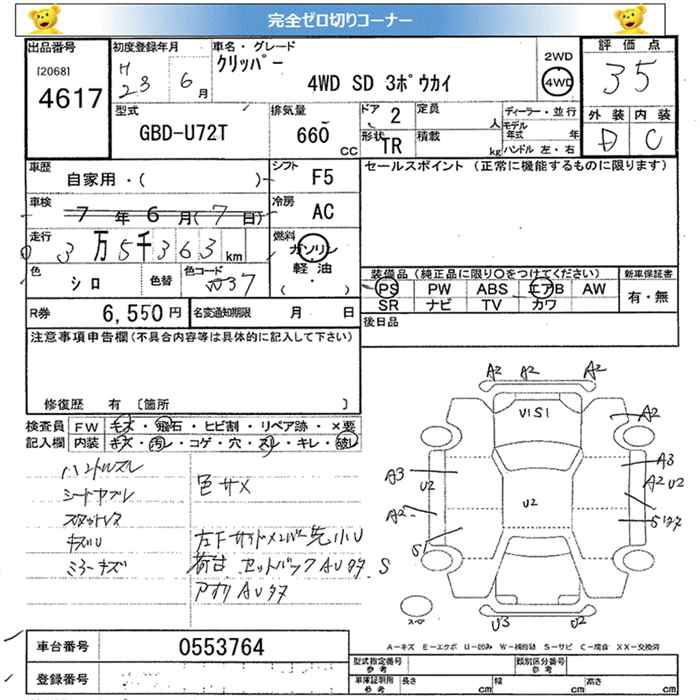 完全ゼロ切りコーナー
出品番号 初度登録年月 車名・グレード 2WD 評価点
[2068] H クリッパー 4WD
4617 23 6月 4WD SD 3ボウカイ 35
型式 排気量 ドア 2 定員 人 ディーラー・並行 外装 内装
GBD-U72T 660 cc 形状 TR 積載 kg モデル年式 年 D C
ハンドル 左・右
車歴 自家用・( ) シフト F5 セールスポイント (正常に機能するものに限ります)
車検 7年6月(7日) 冷房 AC
走行 3万5千363km 燃料 ガソリン
軽油
(・)
色 シロ 色替 色コード W37 装備品(純正品に限り○をつけてください) 新車保証書
PS PW ABS エアB AW 有・無
SR ナビ TV カワ
R券 6,550円 名変通知期限 月 日 後日品
注意事項申告欄(不具合内容等は具体的に記入して下さい)
修復歴 有 [箇所 ]
検査員 FW キズ・飛石・ヒビ割・リペア跡・×要
記入欄 内装 キズ・汚レ・コゲ・穴・スレ・キレ・破レ
ハンドルスレ
シートヤブレ 色サメ
キズU 左下サイドメンバー先小U
ミラーキズ 荷台 セットバックAUサタ、S
アオリAUサタ
A2 A2 A2
V1S1 A2
A3 U2 A3
A2 U2
U2
A2 Sサタ
S
スペア U3 U2
A-キズ E-エクボ U-凹み W-補修跡 S-サビ C-腐食 XX-交換済
車台番号 0553764 型式指定番号 参考 類別区分番号 参考
登録番号 車庫証明用 参考 長さ cm 幅 cm 高さ cm